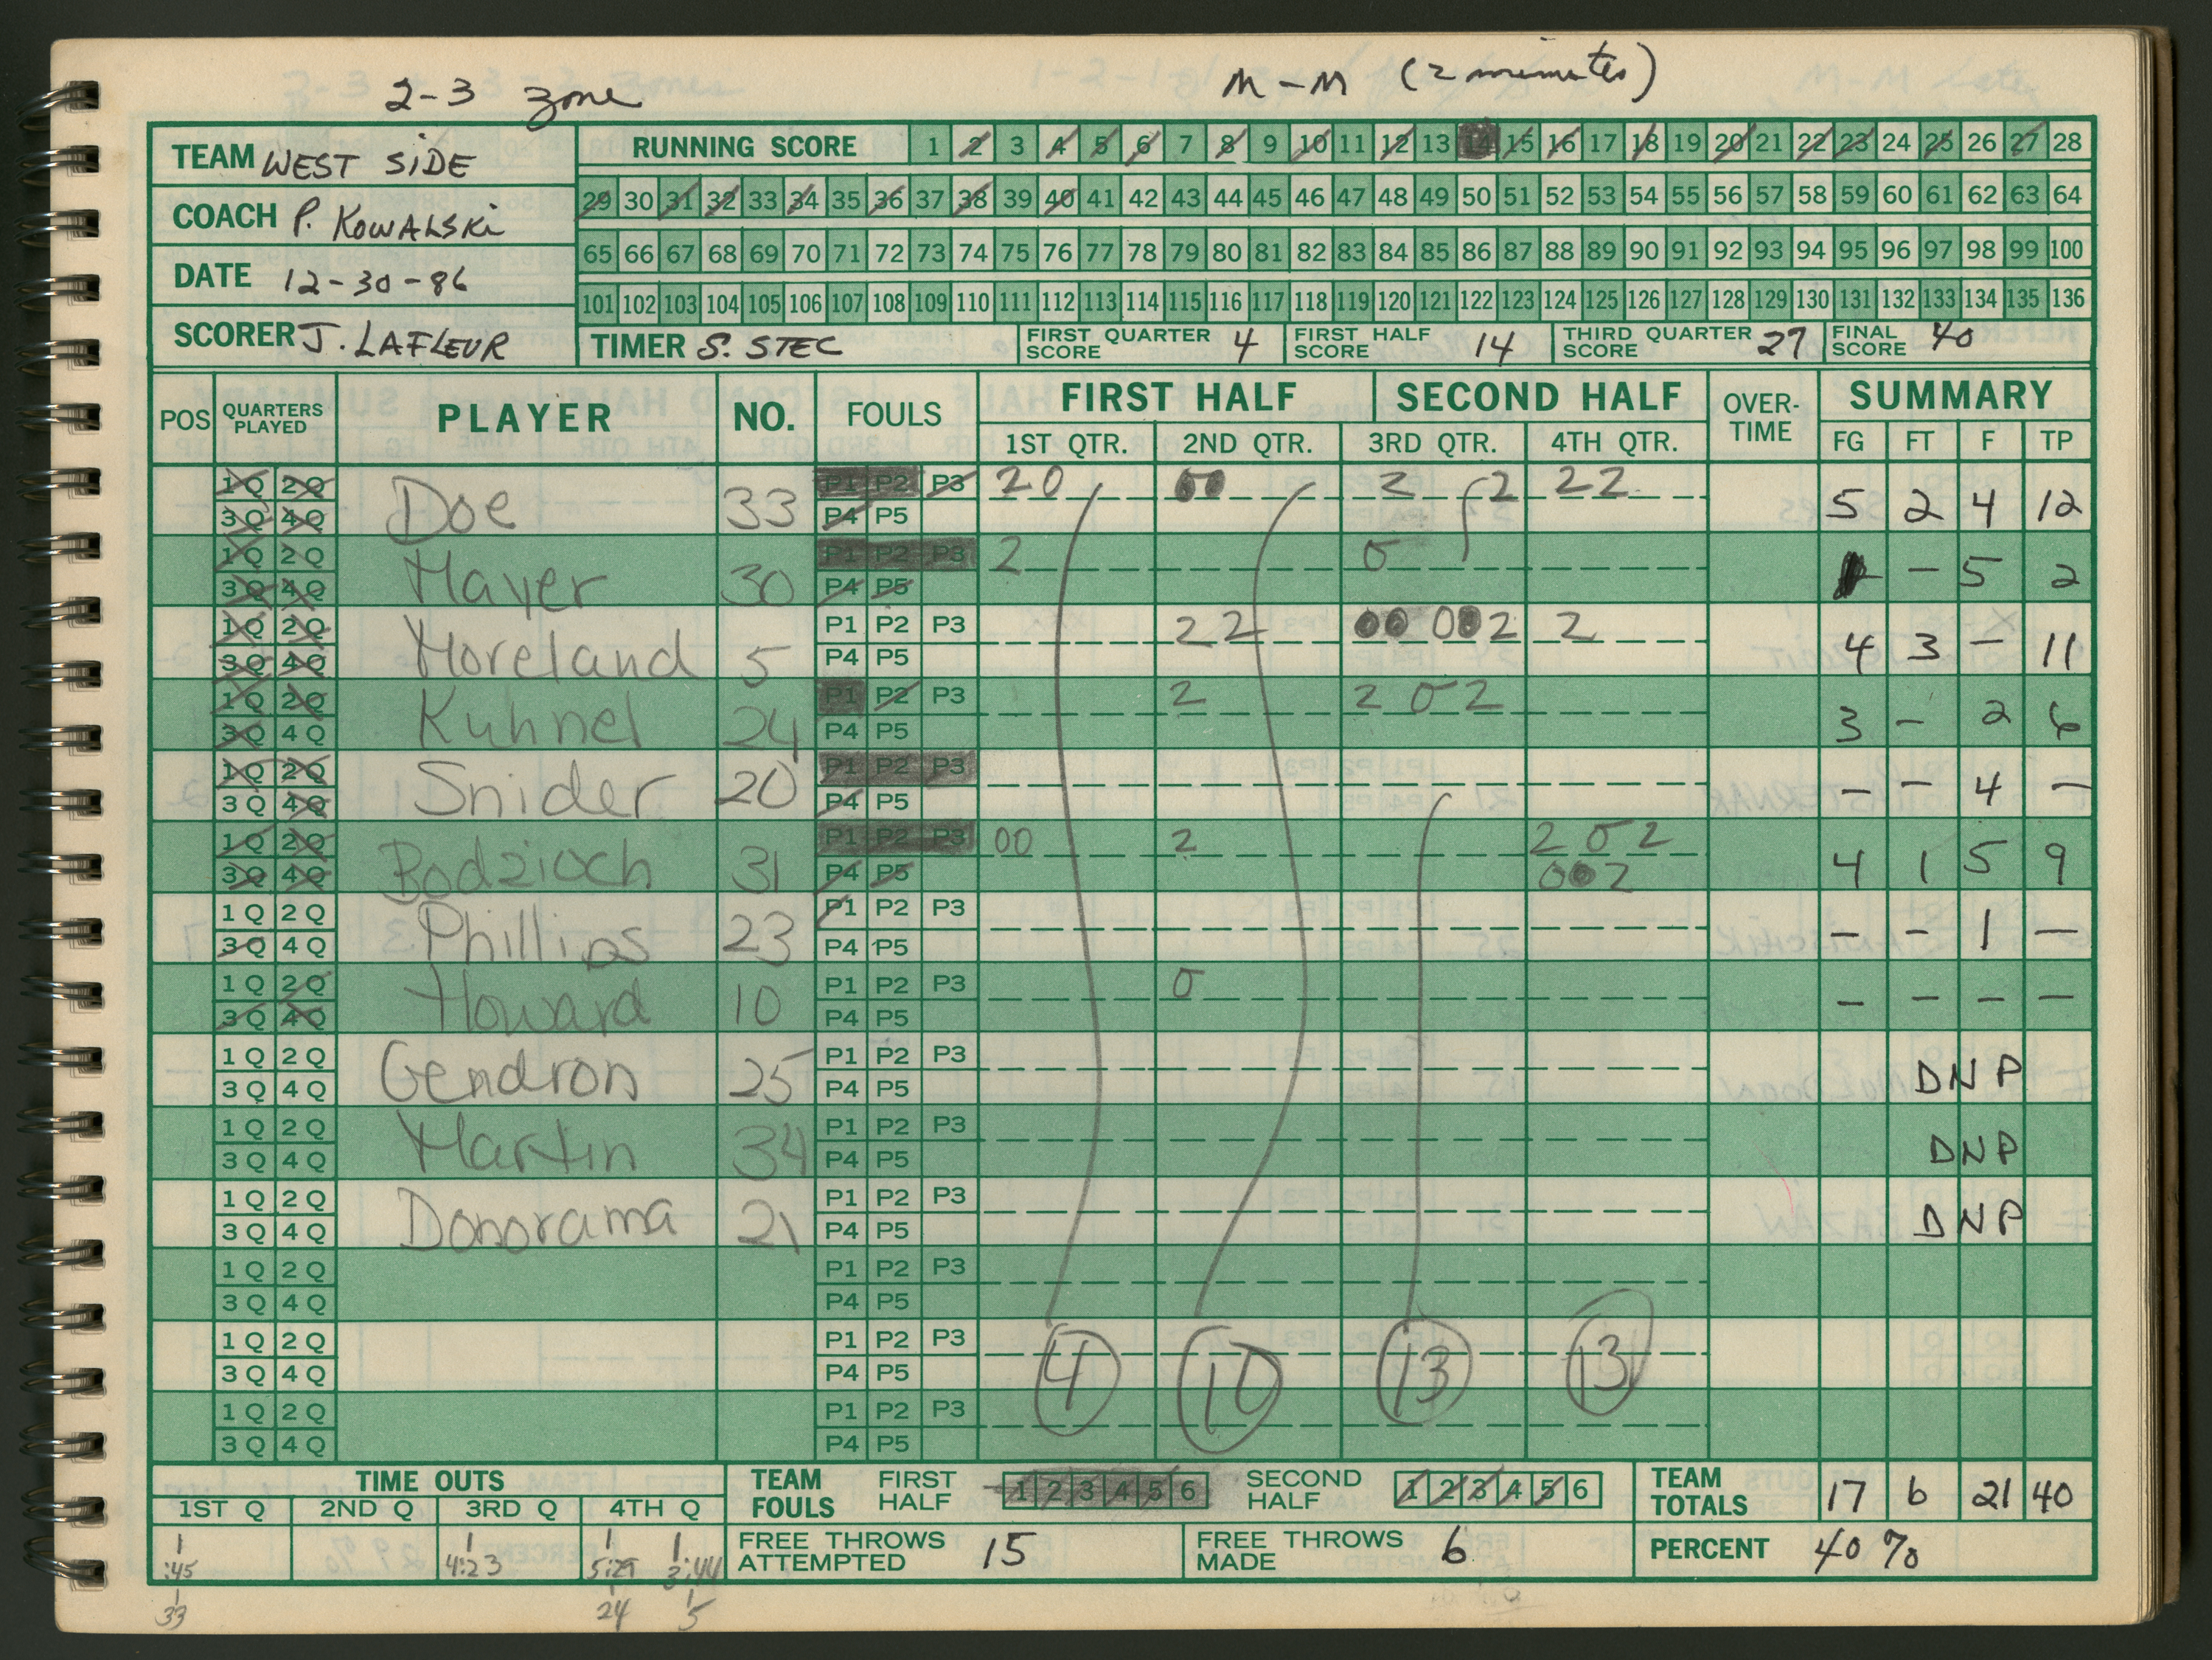 2-3 zone M-M (2 minutes)
TEAM WEST SIDE
COACH P. KOWALSKI
DATE 12-30-86
SCORER J. LAFLEUR
RUNNING SCORE 1 2 3 4 5 6 7 8 9 10 11 12 13 14 15 16 17 18 19 20 21 22 23 24 25 26 27 28
29 30 31 32 33 34 35 36 37 38 39 40 41 42 43 44 45 46 47 48 49 50 51 52 53 54 55 56 57 58 59 60 61 62 63 64
65 66 67 68 69 70 71 72 73 74 75 76 77 78 79 80 81 82 83 84 85 86 87 88 89 90 91 92 93 94 95 96 97 98 99 100
101 102 103 104 105 106 107 108 109 110 111 112 113 114 115 116 117 118 119 120 121 122 123 124 125 126 127 128 129 130 131 132 133 134 135 136
TIMER S. STEC FIRST QUARTER SCORE 4 FIRST HALF SCORE 14 THIRD QUARTER SCORE 27 FINAL SCORE 40
POS QUARTERS PLAYED PLAYER NO. FOULS FIRST HALF SECOND HALF OVER-TIME SUMMARY
1ST QTR. 2ND QTR. 3RD QTR. 4TH QTR. FG FT F TP
1Q 2Q Doe 33 P1 P2 P3 20 00 2 2 22 5 2 4 12
3Q 4Q P4 P5
1Q 2Q Mayer 30 P1 P2 P3 2 0 - 5 2
3Q 4Q P4 P5
1Q 2Q Moreland 5 P1 P2 P3 22 00 002 2 4 3 - 11
3Q 4Q P4 P5
1Q 2Q Kuhnel 24 P1 P2 P3 2 2 0 2 3 - 2 6
3Q 4Q P4 P5
1Q 2Q Snider 20 P1 P2 P3 - - 4 -
3Q 4Q P4 P5
1Q 2Q Bodzioch 31 P1 P2 P3 00 2 2 0 2 4 1 5 9
3Q 4Q P4 P5 002
1Q 2Q Phillips 23 P1 P2 P3 - - 1 -
3Q 4Q P4 P5
1Q 2Q Howard 10 P1 P2 P3 0 - - - -
3Q 4Q P4 P5
1Q 2Q Gendron 25 P1 P2 P3 DNP
3Q 4Q P4 P5
1Q 2Q Martin 34 P1 P2 P3 DNP
3Q 4Q P4 P5
1Q 2Q Donorama 21 P1 P2 P3 DNP
3Q 4Q P4 P5
1Q 2Q P1 P2 P3
3Q 4Q P4 P5
1Q 2Q P1 P2 P3 4 10 13 13
3Q 4Q P4 P5
1Q 2Q P1 P2 P3
3Q 4Q P4 P5
TIME OUTS TEAM FOULS FIRST HALF 1 2 3 4 5 6 SECOND HALF 1 2 3 4 5 6 TEAM TOTALS 17 6 21 40
1ST Q 2ND Q 3RD Q 4TH Q
1 1 1 1 FREE THROWS ATTEMPTED 15 FREE THROWS MADE 6 PERCENT 40 %
:45 4:23 5:29 3:44
33 24 5